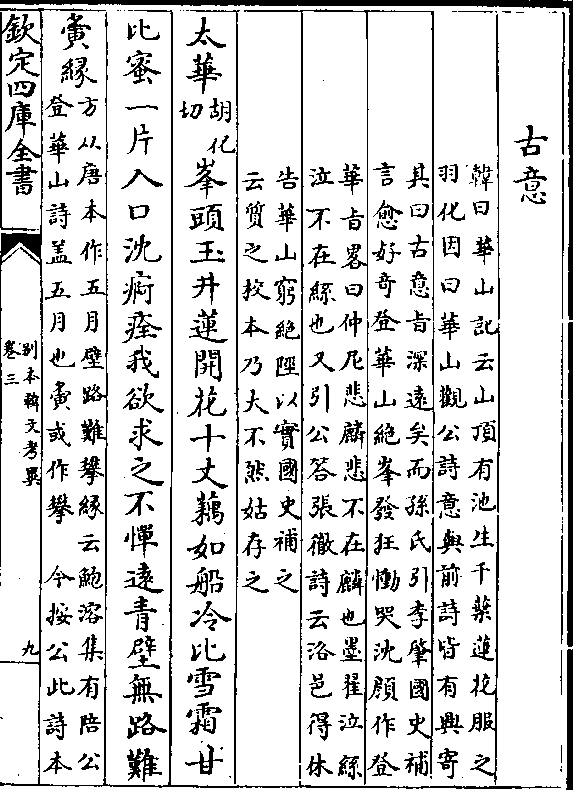 古意
韓曰華山記云山頂有池生千葉蓮花服之
羽化因曰華山觀公詩意與前詩皆有興寄
其曰古意旨深遠矣而孫氏引李肇國史補
言愈好奇登華山絶峯發狂慟哭沈顔作登
華旨畧曰仲尼悲麟悲不在麟也墨翟泣絲
泣不在絲也又引公答張徹詩云洛邑得休
告華山窮絶陘以實國史補之
云質之校本乃大不然姑存之
太華胡化切峯頭玉井蓮開花十丈藕如船冷比雪霜甘
比蜜一片入口沈痾痊我欲求之不憚遠青壁無路難
夤縁方从唐本作五月壁路難攀縁云鮑溶集有陪公
登華山詩蓋五月也夤或作攀 今按公此詩本
欽定四庫全書
别本韓文考異
卷三
九